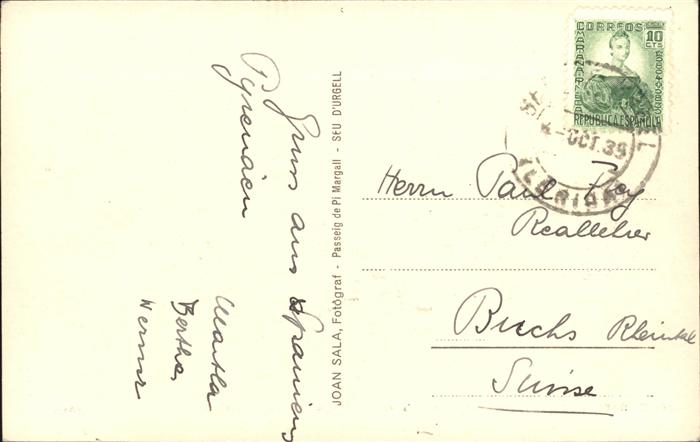 Gruss aus Spanien
Pyrenäen
Martha
Bertha
Werner
JOAN SALA, Fotógraf - Passeig de Pi Margall - SEU D'URGELL
CORREOS
10
CTS
REPUBLICA ESPAÑOLA
4-OCT.35
(LERIDA)
Herrn Paul Frey
Reallehrer
Buchs Rheintal
Suisse